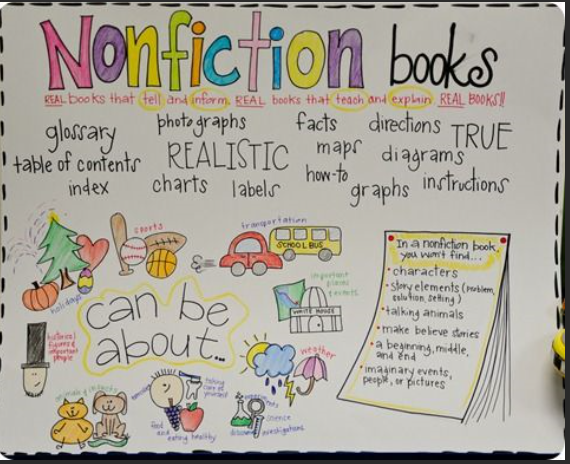 Nonfiction books
REAL books that tell and inform. REAL books that teach and explain. REAL BOOKS!!
glossary photographs facts directions TRUE
table of contents REALISTIC maps diagrams
index charts labels how-to graphs instructions
sports
transportation
SCHOOL BUS
holidays
important places events
WHITE HOUSE
can be
about...
historical figures & important people
weather
animals & insects
taking care of yourself
food and eating healthy
experiments
science
investigations
In a nonfiction book,
you won't find...
• characters
• story elements (problem,
solution, setting)
• talking animals
• make believe stories
• a beginning, middle,
and end
• imaginary events,
people, or pictures